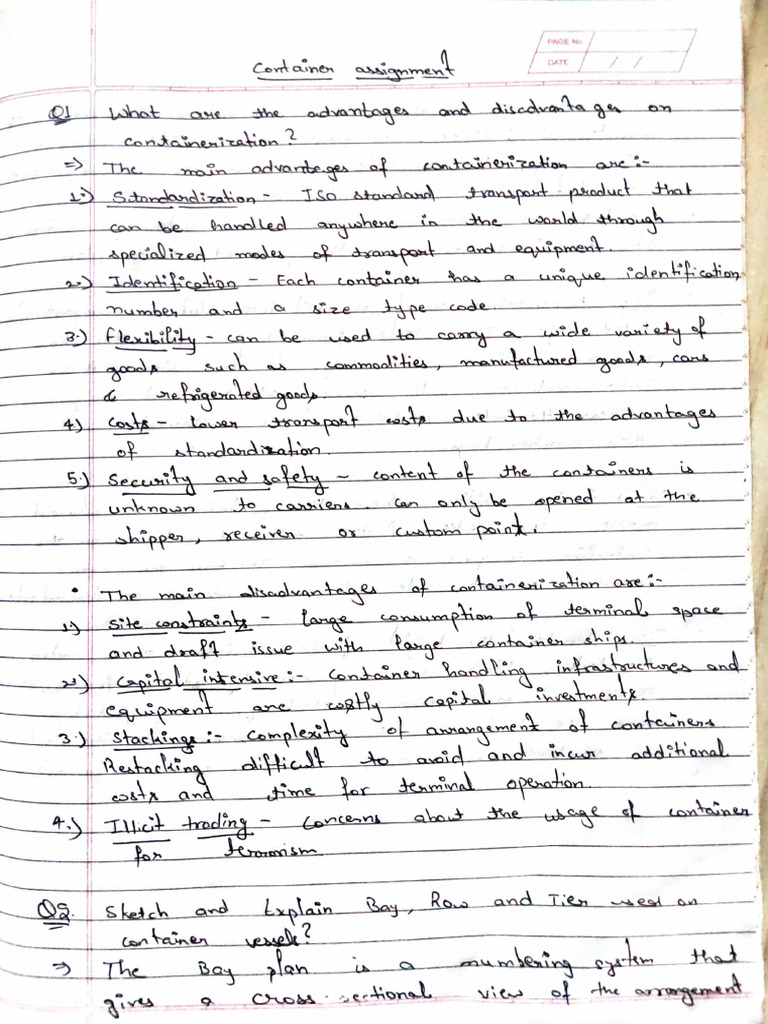 PAGE No
DATE / /
Container assignment
Q1 What are the advantages and disadvantages on
containerization?
⇒ The main advantages of containerization are:-
1.) Standardization - ISO standard transport product that
can be handled anywhere in the world through
specialized modes of transport and equipment.
2.) Identification - Each container has a unique identification
number and a size type code.
3.) flexibility - can be used to carry a wide variety of
goods such as commodities, manufactured goods, cars
& refrigerated goods.
4.) Costs - Lower transport costs due to the advantages
of standardization.
5.) Security and safety - content of the containers is
unknown to carriers. Can only be opened at the
shipper, receiver or custom point.
• The main disadvantages of containerization are:-
1.) Site constraints - large consumption of terminal space
and draft issue with large container ships.
2.) Capital intensive:- Container handling infrastructures and
equipment are costly capital investments.
3.) Stackings:- complexity of arrangement of containers
Restacking difficult to avoid and incur additional
costs and time for terminal operation.
4.) Illicit trading - Concerns about the usage of container
for terrorism
Q2. Sketch and Explain Bay, Row and Tier used on
container vessels?
⇒ The Bay plan is a numbering system that
gives a cross-sectional view of the arrangement